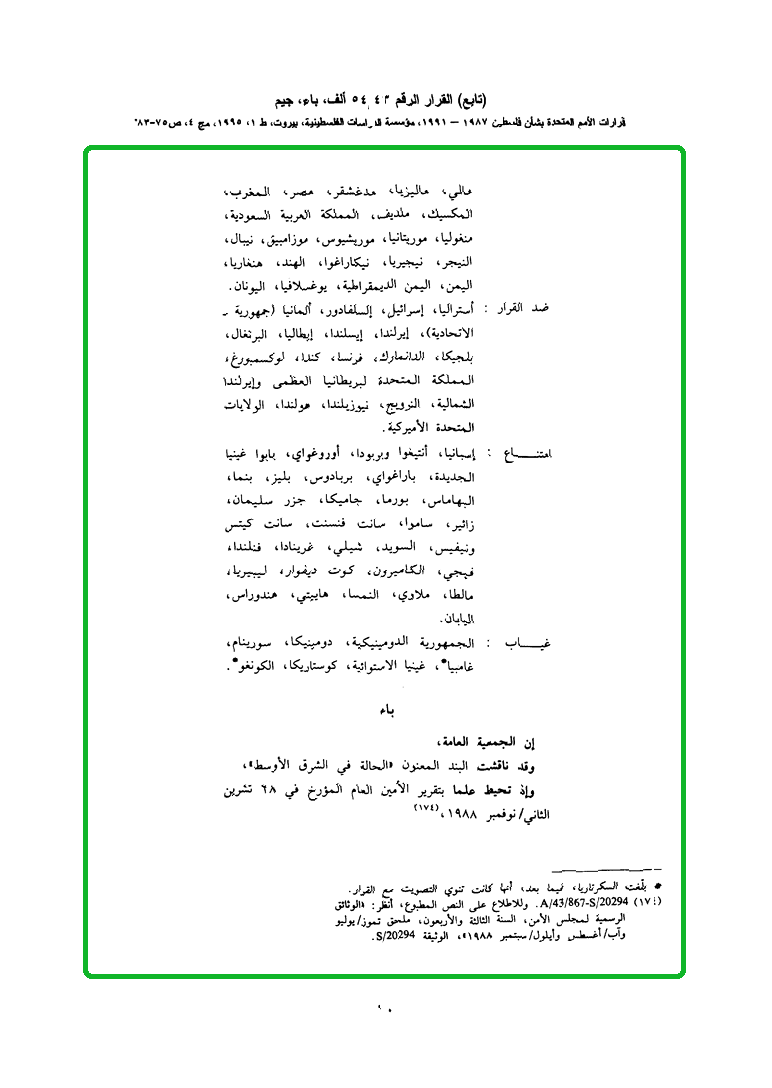 (تابع) القرار الرقم ٤٣/ ٥٤ ألف، باء، جيم
قرارات الأمم المتحدة بشأن فلسطين ١٩٨٧ – ١٩٩١، مؤسسة الدراسات الفلسطينية، بيروت، ط ١، ١٩٩٥، مج ٤، ص٧٥-٨٣
مالي، ماليزيا، مدغشقر، مصر، المغرب،
المكسيك، ملديف، المملكة العربية السعودية،
منغوليا، موريتانيا، موريشيوس، موزامبيق، نيبال،
النيجر، نيجيريا، نيكاراغوا، الهند، هنغاريا،
اليمن، اليمن الديمقراطية، يوغسلافيا، اليونان.
ضد القرار : أستراليا، إسرائيل، إلسلفادور، ألمانيا (جمهورية ـ
الاتحادية)، إيرلندا، إيسلندا، إيطاليا، البرتغال،
بلجيكا، الدانمارك، فرنسا، كندا، لوكسمبورغ،
المملكة المتحدة لبريطانيا العظمى وإيرلندا
الشمالية، النرويج، نيوزيلندا، هولندا، الولايات
المتحدة الأميركية.
امتنـــاع : إسبانيا، أنتيغوا وبربودا، أوروغواي، بابوا غينيا
الجديدة، باراغواي، بربادوس، بليز، بنما،
البهاماس، بورما، جاميكا، جزر سليمان،
زائير، ساموا، سانت فنسنت، سانت كيتس
ونيفيس، السويد، شيلي، غرينادا، فنلندا،
فيجي، الكاميرون، كوت ديفوار، ليبيريا،
مالطا، ملاوي، النمسا، هاييتي، هندوراس،
اليابان.
غيـــاب : الجمهورية الدومينيكية، دومينيكا، سورينام،
غامبيا•، غينيا الاستوائية، كوستاريكا، الكونغو•.
باء
إن الجمعية العامة،
وقد ناقشت البند المعنون «الحالة في الشرق الأوسط»،
وإذ تحيط علما بتقرير الأمين العام المؤرخ في ٢٨ تشرين
الثاني/نوفمبر ١٩٨٨،(١٧٤)
• بلّغت السكرتاريا، فيما بعد، أنها كانت تنوي التصويت مع القرار.
(١٧٤) A/43/867-S/20294. وللاطلاع على النص المطبوع، أنظر: «الوثائق
الرسمية لمجلس الأمن، السنة الثالثة والأربعون، ملحق تموز/يوليو
وآب/أغسطس وأيلول/سبتمبر ١٩٨٨»، الوثيقة S/20294.